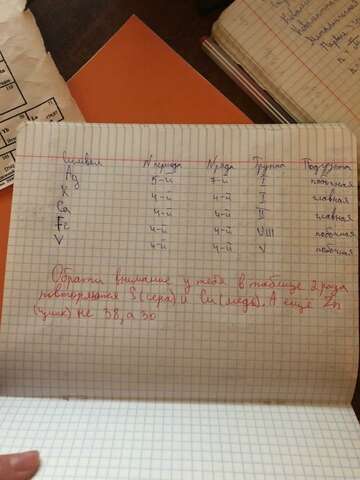 Символ № периода № ряда Группа Подгруппа
Ag 5-й 7-й I побочная
K 4-й 4-й I главная
Ca 4-й 4-й II главная
Fe 4-й 4-й VIII побочная
V 4-й 4-й V побочная
Обрати внимание у тебя в таблице 2 раза
повторяются S (сера) и Cu (медь). А ещё Zn
(цинк) не 38, а 30